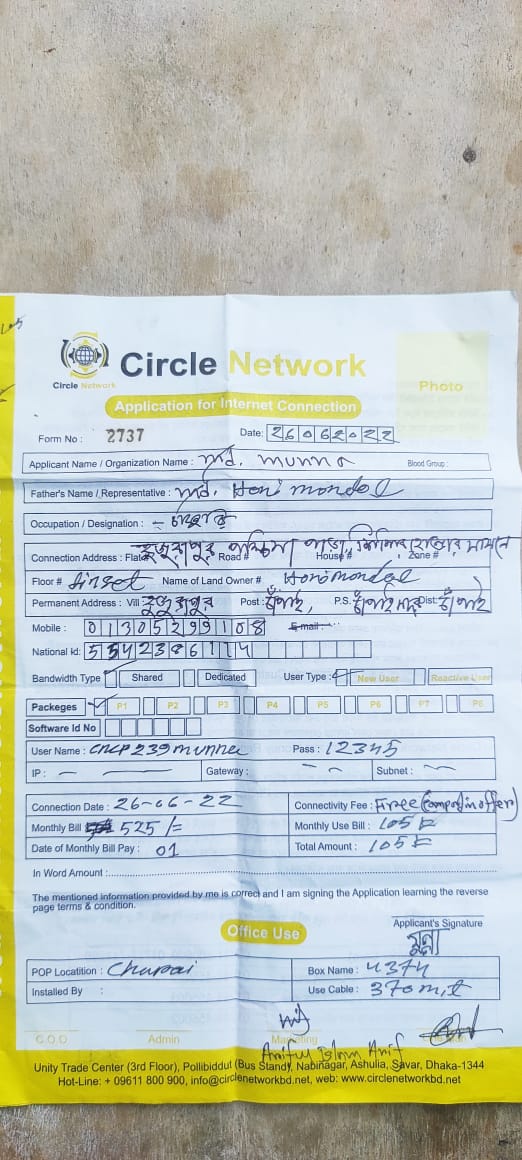 Circle Network
Circle Network
Photo
Application for Internet Connection
Form No : 2737
Date: 26062022
Applicant Name / Organization Name : Md. Munna
Blood Group :
Father's Name / Representative : Md. Honi mondol
Occupation / Designation :
Connection Address : Flat# হুজরাপুর পশ্চিম পাড়া, Road # House # Zone #
Floor # Name of Land Owner # Honi mondol
Permanent Address : Vill হুজরাপুর Post : P.S: Dist:
Mobile : 01305299108 E-mail :
National Id: 5542386114
Bandwidth Type Shared Dedicated User Type : New User Reactive User
Packeges P1 P2 P3 P4 P5 P6 P7 P8
Software Id No
User Name : CNCP239munna Pass : 12345
IP : Gateway : Subnet :
Connection Date : 26-06-22 Connectivity Fee : Free
Monthly Bill 525/= Monthly Use Bill : 105
Date of Monthly Bill Pay : 01 Total Amount : 105
In Word Amount :
The mentioned information provided by me is correct and I am signing the Application learning the reverse
page terms & condition.
Applicant's Signature
মুন্না
Office Use
POP Locatition : Chapai Box Name : 4374
Installed By : Use Cable : 370 mit
Ariful Islam Arif
C.O.O Admin Marketing
Unity Trade Center (3rd Floor), Pollibiddut (Bus Stand), Nabinagar, Ashulia, Savar, Dhaka-1344
Hot-Line: + 09611 800 900, info@circlenetworkbd.net, web: www.circlenetworkbd.net